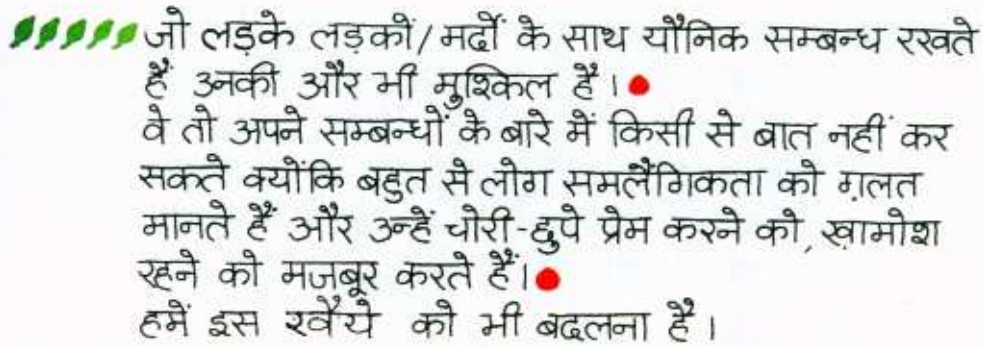 जो लड़के लड़कों/मर्दों के साथ यौनिक सम्बन्ध रखते
हैं उनकी और भी मुश्किल है।
वे तो अपने सम्बन्धों के बारे में किसी से बात नहीं कर
सकते क्योंकि बहुत से लोग समलैंगिकता को ग़लत
मानते हैं और उन्हें चोरी-छुपे प्रेम करने को, ख़ामोश
रहने को मजबूर करते हैं।
हमें इस रवैये को भी बदलना है।